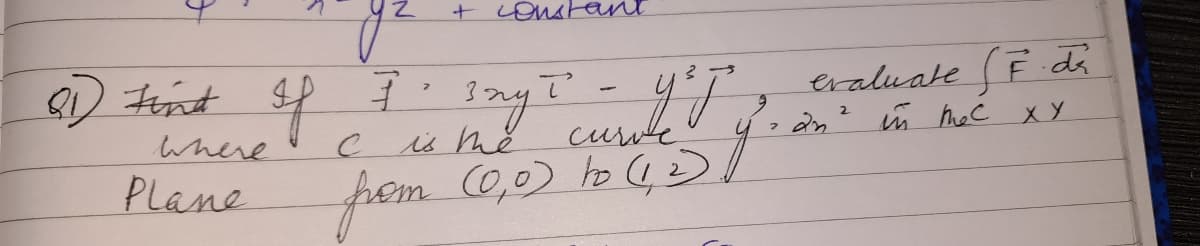 φ = x² yz + constant
Q1) Find If F⃗ = 3xy i⃗ - y³ j⃗, evaluate ∫ F⃗ . dr⃗
where C is the curve y = 2x² in the C xy
Plane from (0,0) to (1,2).